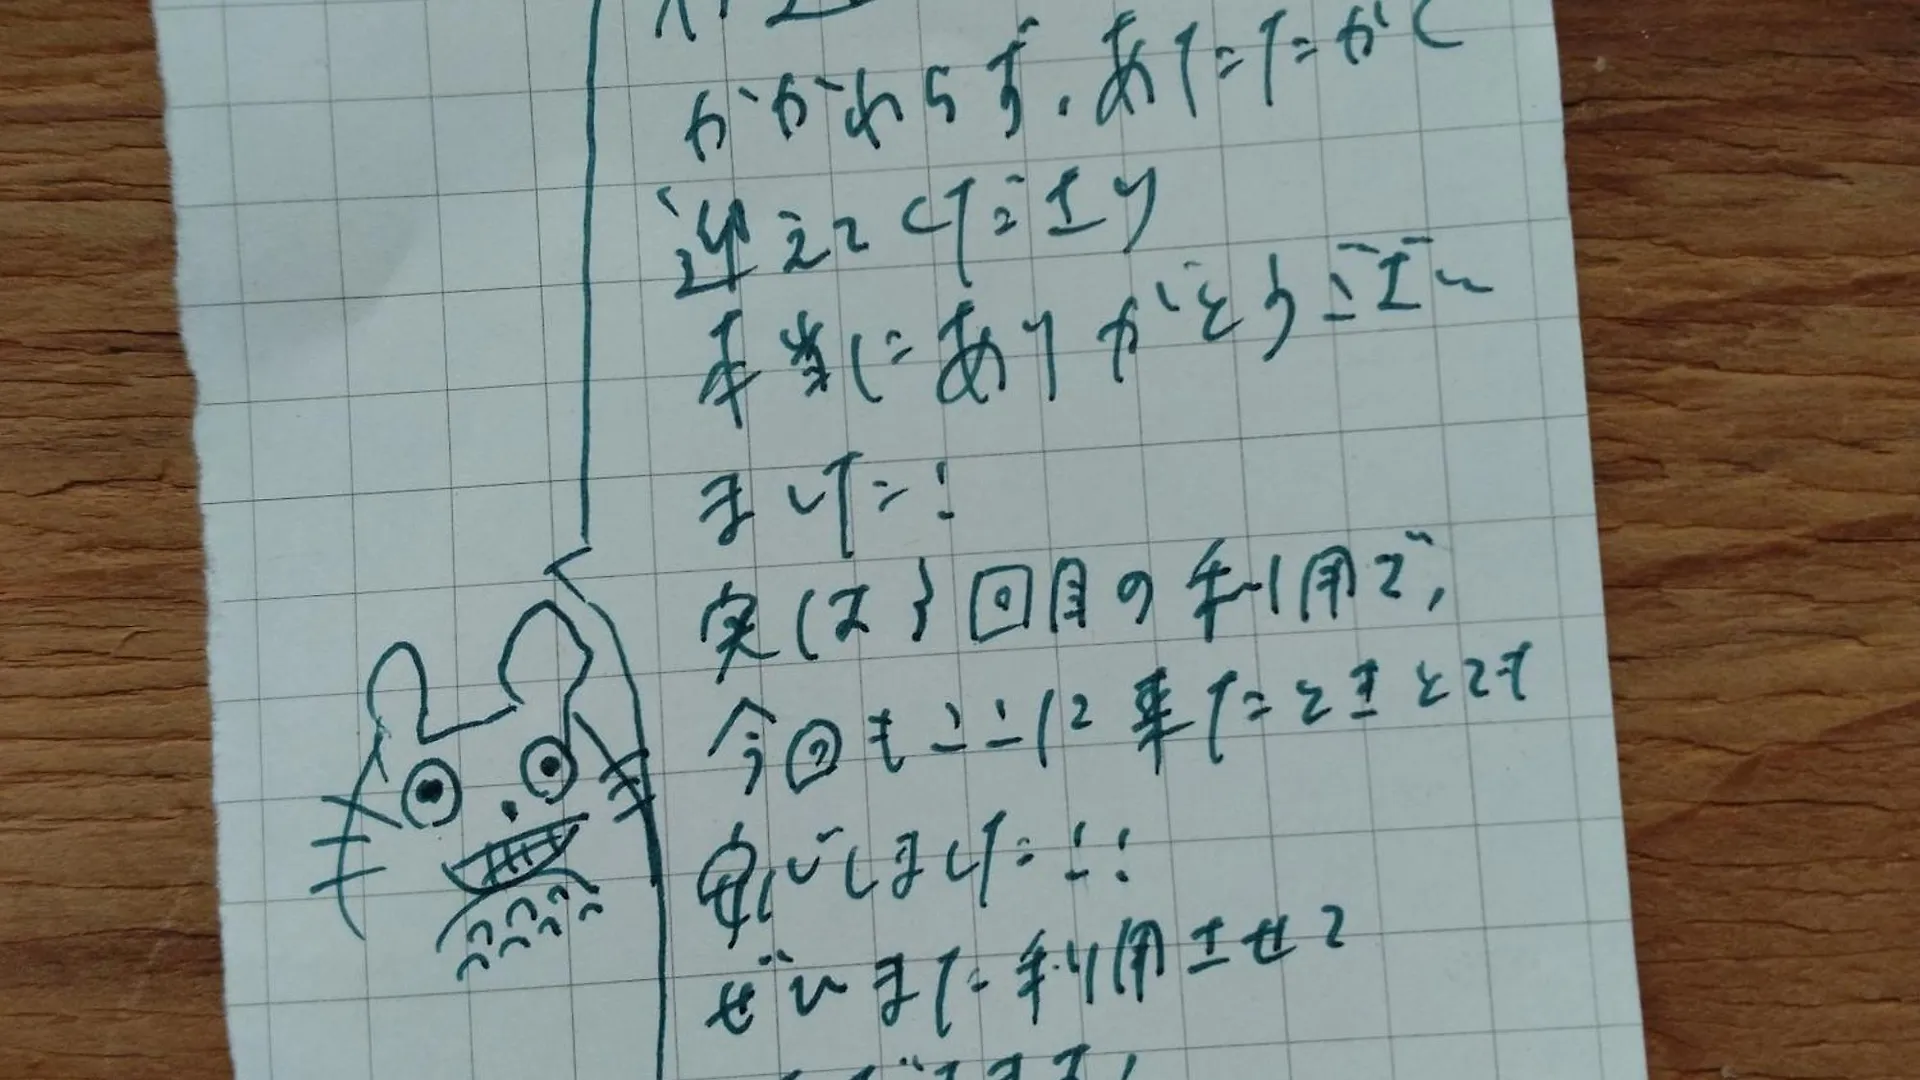 かかわらず、あたたかく
迎えてくださり
本当にありがとうござい
ました!
実は3回目の利用で、
今回もここに来たときとても
安心しました!!
ぜひまた利用させて